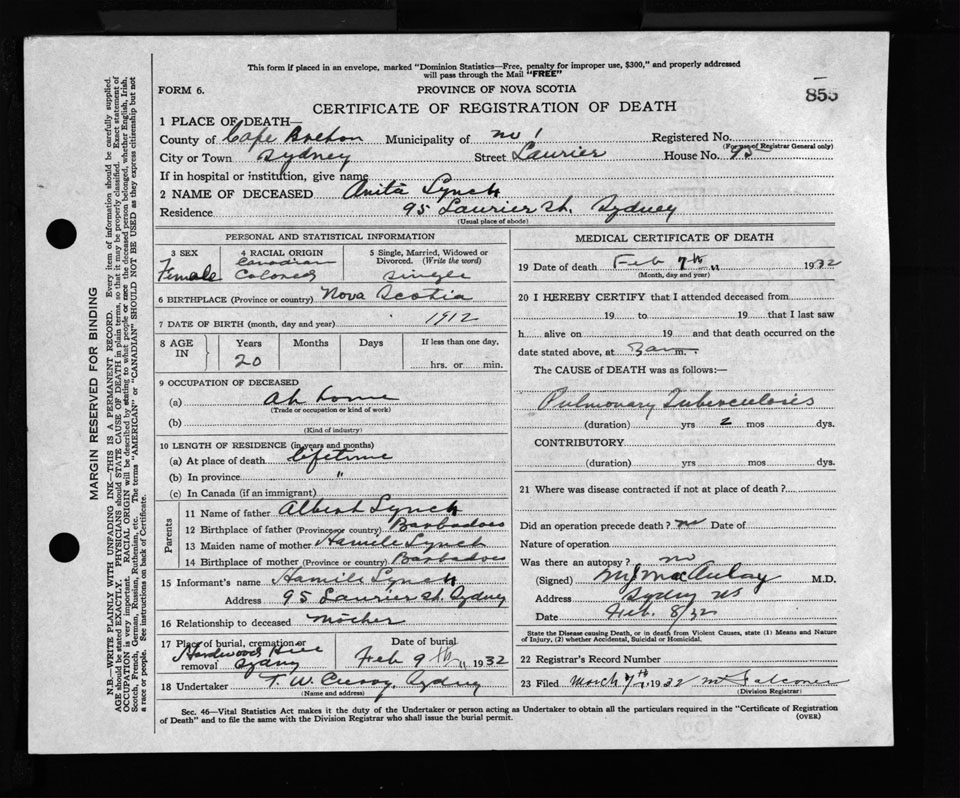 This form if placed in an envelope, marked "Dominion Statistics—Free, penalty for improper use, $300," and properly addressed
will pass through the Mail "FREE"
FORM 6. PROVINCE OF NOVA SCOTIA
CERTIFICATE OF REGISTRATION OF DEATH
855
1 PLACE OF DEATH—
County of Cape Breton Municipality of No 1 Registered No.
(For use of Registrar General only)
City or Town Sydney Street Laurier House No. 95
If in hospital or institution, give name
2 NAME OF DECEASED Anita Lynch
Residence 95 Laurier St. Sydney
(Usual place of abode)
PERSONAL AND STATISTICAL INFORMATION
3 SEX Female
4 RACIAL ORIGIN Canadian Colored
5 Single, Married, Widowed or Divorced. (Write the word) single
6 BIRTHPLACE (Province or country) Nova Scotia
7 DATE OF BIRTH (month, day and year) 1912
8 AGE IN Years 20 Months Days If less than one day, hrs. or min.
9 OCCUPATION OF DECEASED
(a) At home
(Trade or occupation or kind of work)
(b)
(Kind of industry)
10 LENGTH OF RESIDENCE (in years and months)
(a) At place of death lifetime
(b) In province "
(c) In Canada (if an immigrant)
Parents
11 Name of father Albert Lynch
12 Birthplace of father (Province or country) Barbadoes
13 Maiden name of mother Hamile Lynch
14 Birthplace of mother (Province or country) Barbadoes
15 Informant's name Hamile Lynch
Address 95 Laurier St. Sydney
16 Relationship to deceased Mother
17 Place of burial, cremation or removal Hardwood Hill Sydney
Date of burial Feb 9th " 1932
18 Undertaker T. W. Curry, Sydney
(Name and address)
MEDICAL CERTIFICATE OF DEATH
19 Date of death Feb 7th " 1932
(Month, day and year)
20 I HEREBY CERTIFY that I attended deceased from
19 to 19 that I last saw
h alive on 19 and that death occurred on the
date stated above, at 3 a m.
The CAUSE of DEATH was as follows:—
Pulmonary Tuberculosis
(duration) yrs 2 mos dys.
CONTRIBUTORY
(duration) yrs mos dys.
21 Where was disease contracted if not at place of death?
Did an operation precede death? no Date of
Nature of operation
Was there an autopsy? no
(Signed) M J MacAulay M.D.
Address Sydney NS
Date Feb. 8/32
State the Disease causing Death, or in death from Violent Causes, state (1) Means and Nature
of Injury, (2) whether Accidental, Suicidal or Homicidal.
22 Registrar's Record Number
23 Filed March 7th 1932 M Falconer
(Division Registrar)
Sec. 46—Vital Statistics Act makes it the duty of the Undertaker or person acting as Undertaker to obtain all the particulars required in the "Certificate of Registration
of Death" and to file the same with the Division Registrar who shall issue the burial permit. (OVER)
MARGIN RESERVED FOR BINDING
N.B.—WRITE PLAINLY WITH UNFADING INK—THIS IS A PERMANENT RECORD. Every item of information should be carefully supplied.
AGE should be stated EXACTLY. PHYSICIANS should STATE CAUSE OF DEATH in plain terms, so that it may be properly classified. Exact statement of
OCCUPATION is very important. RACIAL ORIGIN will be described by stating to what people or race the deceased person belonged, whether English, Irish,
Scotch, French, German, Russian, Ruthenian, etc. The terms "AMERICAN" or "CANADIAN" SHOULD NOT BE USED as they express citizenship but not
a race or people. See instructions on back of Certificate.